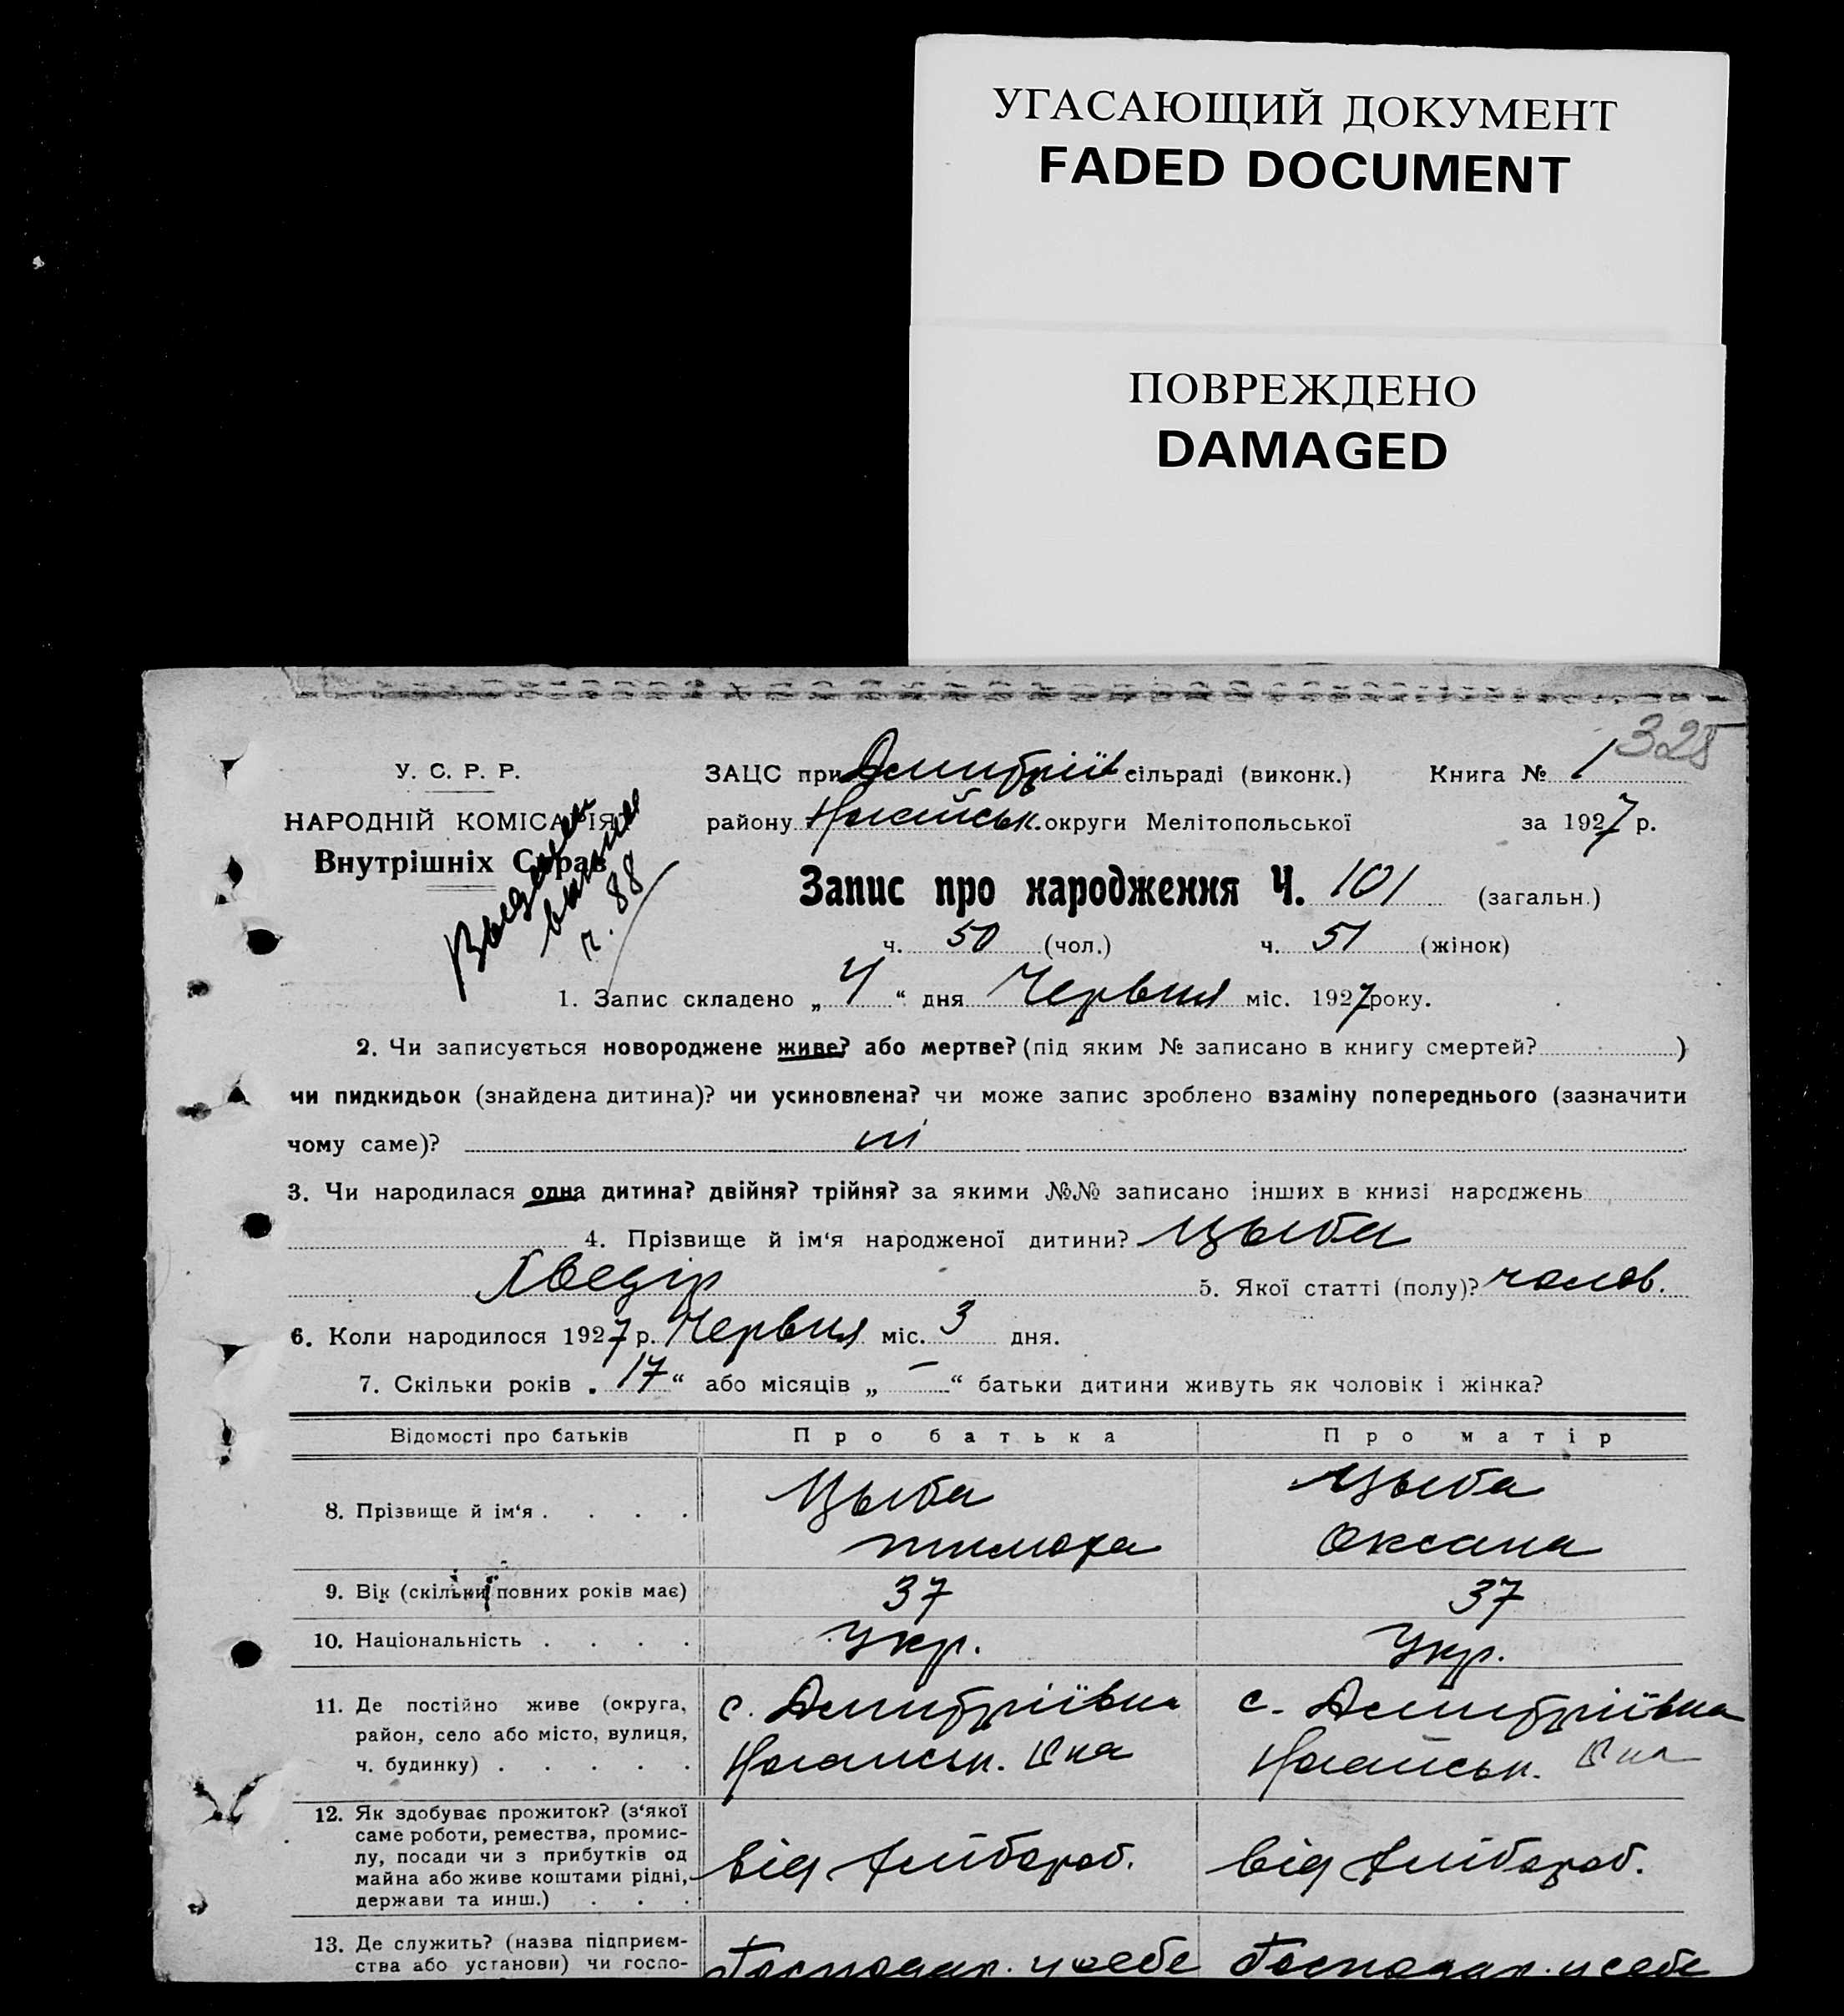 УГАСАЮЩИЙ ДОКУМЕНТ
FADED DOCUMENT
ПОВРЕЖДЕНО
DAMAGED
325
У. С. Р. Р.
НАРОДНІЙ КОМІСАРІЯТ
Внутрішніх Справ
ч. 88
ЗАЦС при Дмитріїв сільраді (виконк.) Книга № 1
району Ногайськ. округи Мелітопольської за 1927 р.
Запис про народження Ч. 101 (загальн.)
ч. 50 (чол.) ч. 51 (жінок)
1. Запис складено „ 4 “ дня Червня міс. 1927 року.
2. Чи записується новороджене живе? або мертве? (під яким № записано в книгу смертей? )
чи пидкидьок (знайдена дитина)? чи усиновлена? чи може запис зроблено взаміну попереднього (зазначити
чому саме)? ні
3. Чи народилася одна дитина? двійня? трійня? за якими №№ записано інших в книзі народжень
4. Прізвище й ім‘я народженої дитини? Цыба
Хведір 5. Якої статті (полу)? чолов.
6. Коли народилося 1927 р. Червня міс. 3 дня.
7. Скільки років „ 17 “ або місяців „ — “ батьки дитини живуть як чоловік і жінка?
Відомості про батьків Про батька Про матір
8. Прізвище й ім‘я . . . . Цыба Цыба
Тимоха Оксана
9. Вік (скільки повних років має) 37 37
10. Національність . . . . Укр. Укр.
11. Де постійно живе (округа, с. Дмитріївка с. Дмитріївка
район, село або місто, вулиця,
ч. будинку) . . . . . Ногайськ. Ногайськ.
12. Як здобуває прожиток? (з‘якої
саме роботи, ремества, промис-
лу, посади чи з прибутків од від хлібороб. від хлібороб.
майна або живе коштами рідні,
держави та инш.) . . .
13. Де служить? (назва підприєм- Господар. у себе Господар. у себе
ства або установи) чи госпо-